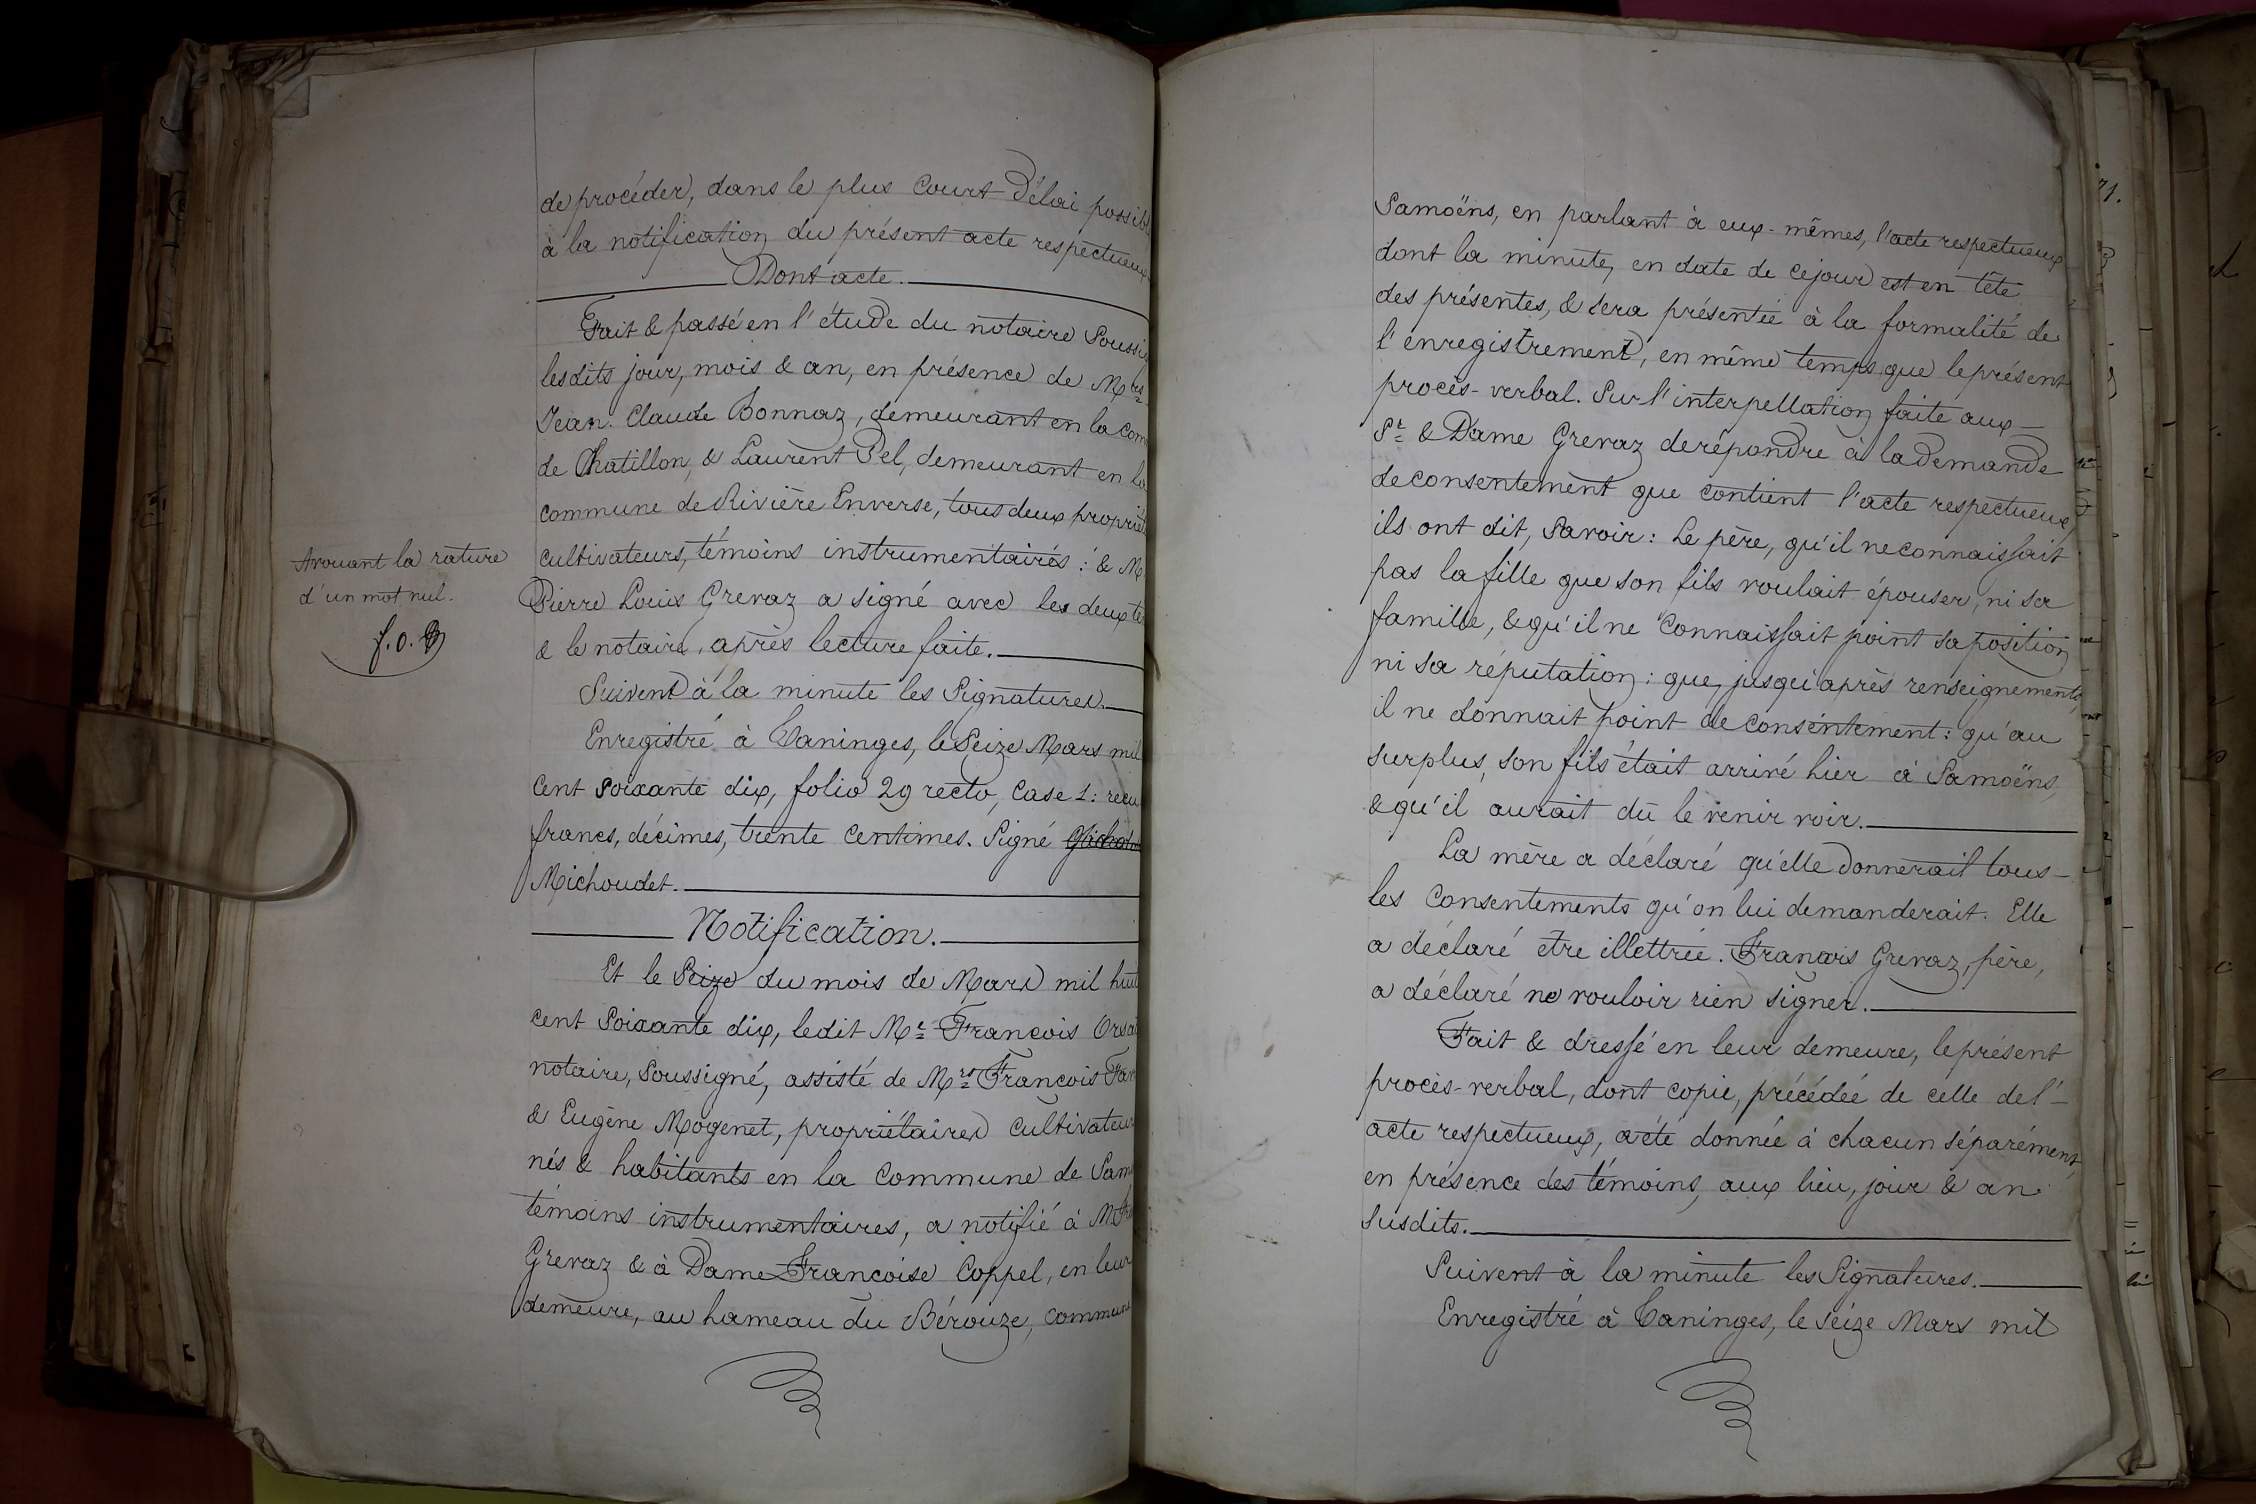 de procéder, dans le plus court délai possibl
à la notification du présent acte respectueux
Dont acte.
Fait & passé en l'étude du notaire Soussi
lesdits jour, mois & an, en présence de Mrs
Jean-Claude Bonnaz, demeurant en la com
de Chatillon, & Laurent Pel, demeurant en la
commune de Rivière Enverse, tous deux propriét
cultivateurs, témoins instrumentaires : & M
Pierre Louis Grevaz a signé avec les deux té
& le notaire, après lecture faite.
Suivent à la minute les Signatures.
Enregistré à Taninges, le Seize Mars mil
cent Soixante dix, folio 29 recto, Case 1: reçu
francs, décimes, trente centimes. Signé
Michoudet.
Avouant la rature
d'un mot nul.
f.o.
Notification.
Et le Seize du mois de Mars mil huit
cent Soixante dix, ledit Mr François Orsat
notaire, Soussigné, assisté de Mrs François Fav
& Eugène Mogenet, propriétaires cultivateur
nés & habitants en la commune de Samo
témoins instrumentaires, a notifié à Mr
Grevaz & à Dame Françoise Coppel, en leur
demeure, au hameau du Bérouze, commune
Samoëns, en parlant à eux-mêmes, l'acte respectueux
dont la minute, en date de ce jour est en tête
des présentes, & sera présentée à la formalité de
l'enregistrement, en même temps que le présent
procès-verbal. Sur l'interpellation faite aux
Sr & Dame Grevaz de répondre à la demande
de consentement que contient l'acte respectueux,
ils ont dit, Savoir : Le père, qu'il ne connaissait
pas la fille que son fils voulait épouser, ni sa
famille, & qu'il ne connaissait point sa position
ni sa réputation : que, jusqu'après renseignements
il ne donnait point de consentement : qu'au
surplus, son fils était arrivé hier à Samoëns,
& qu'il aurait dû le venir voir.
La mère a déclaré qu'elle donnerait tous
les consentements qu'on lui demanderait. Elle
a déclaré être illettrée. François Grevaz, père,
a déclaré ne vouloir rien signer.
Fait & dressé en leur demeure, le présent
procès-verbal, dont copie, précédée de celle de l'
acte respectueux, a été donnée à chacun séparément,
en présence des témoins, aux lieu, jour & an
susdits.
Suivent à la minute les Signatures.
Enregistré à Taninges, le seize Mars mil